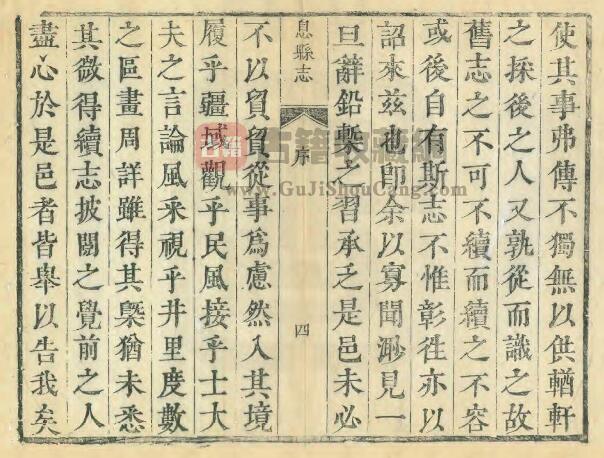 使其事弗傳不獨無以供輶軒
之採後之人又孰從而識之故
舊志之不可不續而續之不容
或後自有斯志不惟彰徃亦以
詔來茲也卽余以寡聞渺見一
旦辭鉛槧之習承乏是邑未必
息縣志
序
四
不以貿貿從事爲慮然入其境
履乎疆域觀乎民風接乎士大
夫之言論風采視乎井里度數
之區畫周詳雖得其槩猶未悉
其微得續志披閱之覺前之人
盡心於是邑者皆舉以告我矣
古籍收藏網
www.GuJiShouCang.com
古籍